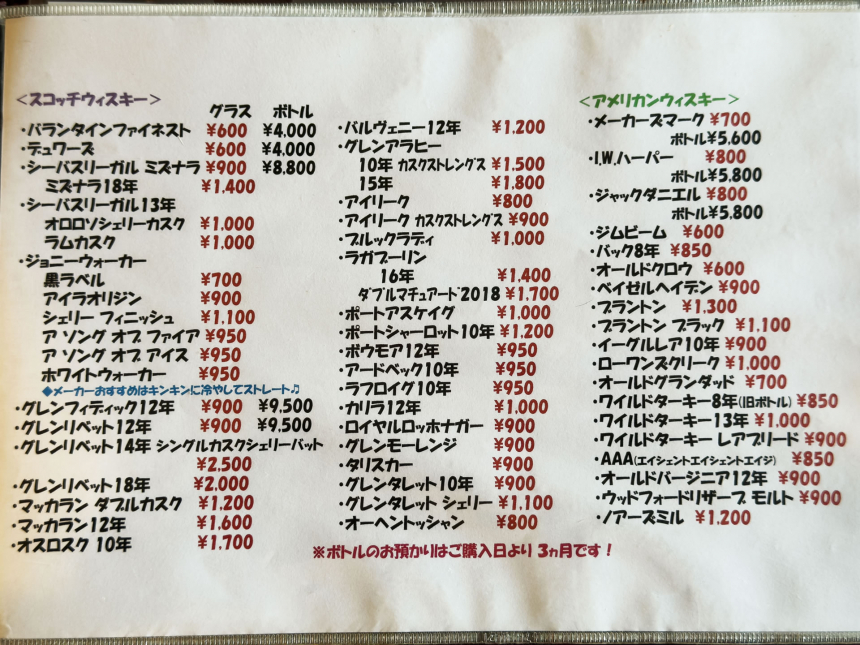 <スコッチウィスキー>
グラス ボトル
・バランタインファイネスト ¥600 ¥4,000
・デュワーズ ¥600 ¥4,000
・シーバスリーガル ミズナラ ¥900 ¥8,800
ミズナラ18年 ¥1,400
・シーバスリーガル13年
オロロソシェリーカスク ¥1,000
ラムカスク ¥1,000
・ジョニーウォーカー
黒ラベル ¥700
アイラオリジン ¥900
シェリー フィニッシュ ¥1,100
ア ソング オブ ファイア ¥950
ア ソング オブ アイス ¥950
ホワイトウォーカー ¥950
◆メーカーおすすめはキンキンに冷やしてストレート♫
・グレンフィディック12年 ¥900 ¥9,500
・グレンリベット12年 ¥900 ¥9,500
・グレンリベット14年 シングルカスクシェリーバット
¥2,500
・グレンリベット18年 ¥2,000
・マッカラン ダブルカスク ¥1,200
・マッカラン12年 ¥1,600
・オスロスク 10年 ¥1,700
・バルヴェニー12年 ¥1,200
・グレンアラヒー
10年 カスクストレングス ¥1,500
15年 ¥1,800
・アイリーク ¥800
・アイリーク カスクストレングス ¥900
・ブルックラディ ¥1,000
・ラガブーリン
16年 ¥1,400
ダブルマチュアード2018 ¥1,700
・ポートアスケイグ ¥1,000
・ポートシャーロット10年 ¥1,200
・ボウモア12年 ¥950
・アードベック10年 ¥950
・ラフロイグ10年 ¥950
・カリラ12年 ¥1,000
・ロイヤルロッホナガー ¥900
・グレンモーレンジ ¥900
・タリスカー ¥900
・グレンタレット10年 ¥900
・グレンタレット シェリー ¥1,100
・オーヘントッシャン ¥800
<アメリカンウィスキー>
・メーカーズマーク ¥700
ボトル¥5,600
・I.W.ハーパー ¥800
ボトル¥5,800
・ジャックダニエル ¥800
ボトル¥5,800
・ジムビーム ¥600
・バック8年 ¥850
・オールドクロウ ¥600
・ベイゼルヘイデン ¥900
・ブラントン ¥1,300
・ブラントン ブラック ¥1,100
・イーグルレア10年 ¥900
・ローワンズクリーク ¥1,000
・オールドグランダッド ¥700
・ワイルドターキー8年(旧ボトル) ¥850
・ワイルドターキー13年 ¥1,000
・ワイルドターキー レアブリード ¥900
・AAA(エイシェントエイシェントエイジ) ¥850
・オールドバージニア12年 ¥900
・ウッドフォードリザーブ モルト ¥900
・ノアーズミル ¥1,200
※ボトルのお預かりはご購入日より 3ヵ月です！